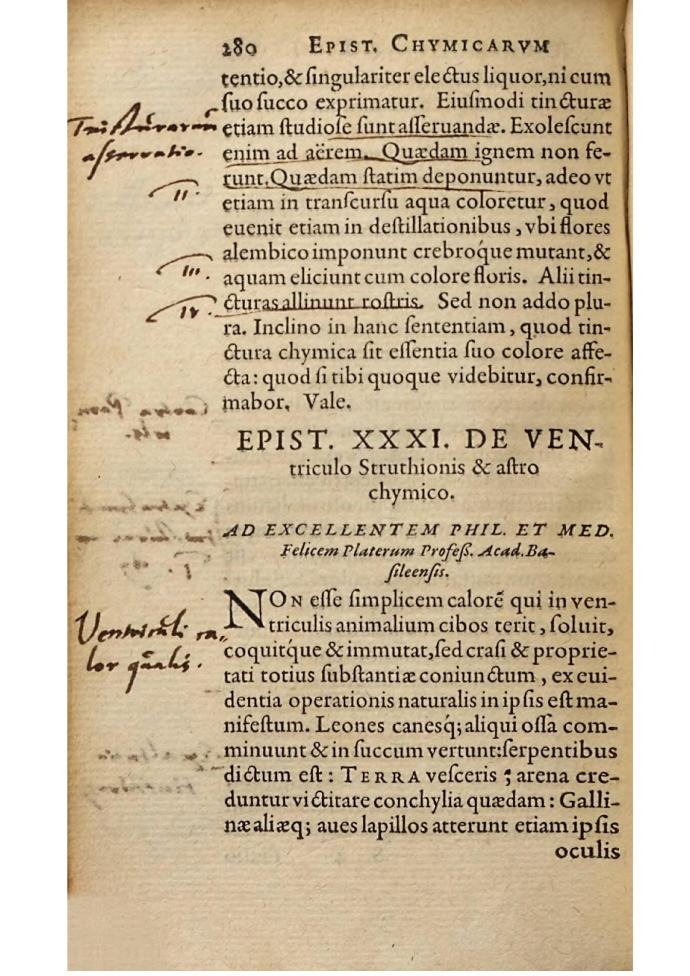 280 EPIST. CHYMICARVM
tentio,& ſingulariter electus liquor,ni cum
ſuo ſucco exprimatur. Eiuſmodi tincturæ
etiam ſtudioſe ſunt aſſeruandæ. Exoleſcunt
enim ad aërem. Quædam ignem non fe-
runt.Quædam ſtatim deponuntur, adeo vt
etiam in tranſcurſu aqua coloretur, quod
euenit etiam in deſtillationibus, vbi flores
alembico imponunt crebroq́ue mutant,&
aquam eliciunt cum colore floris. Alii tin-
cturas allinunt roſtris. Sed non addo plu-
ra. Inclino in hanc ſententiam, quod tin-
ctura chymica ſit eſſentia ſuo colore affe-
cta: quod ſi tibi quoque videbitur, confir-
mabor. Vale.
Tincturarum
aſſervatio.
II.
III.
IV.
EPIST. XXXI. DE VEN-
triculo Struthionis & aſtro
chymico.
AD EXCELLENTEM PHIL. ET MED.
Felicem Platerum Profeß. Acad. Ba-
ſileenſis.
NON eſſe ſimplicem calorē qui in ven-
triculis animalium cibos terit, ſoluit,
coquitq́ue & immutat, ſed craſi & proprie-
tati totius ſubſtantiæ coniunctum, ex eui-
dentia operationis naturalis in ipſis eſt ma-
nifeſtum. Leones canesq́; aliqui oſſa com-
minuunt & in ſuccum vertunt:ſerpentibus
dictum eſt: TERRA veſceris; arena cre-
duntur victitare conchylia quædam: Galli-
næ aliæq; aues lapillos atterunt etiam ipſis
oculis
Ventriculi ca„
lor qualis.